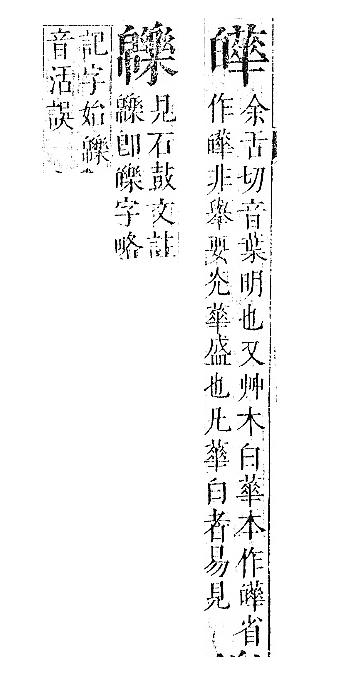 皣
余舌切音葉明也又艸木白華本作皣省
作皣非舉要光華盛也凡華白者易見
皪
見石鼓文註
皪即皪字略
記字始皪
音活誤